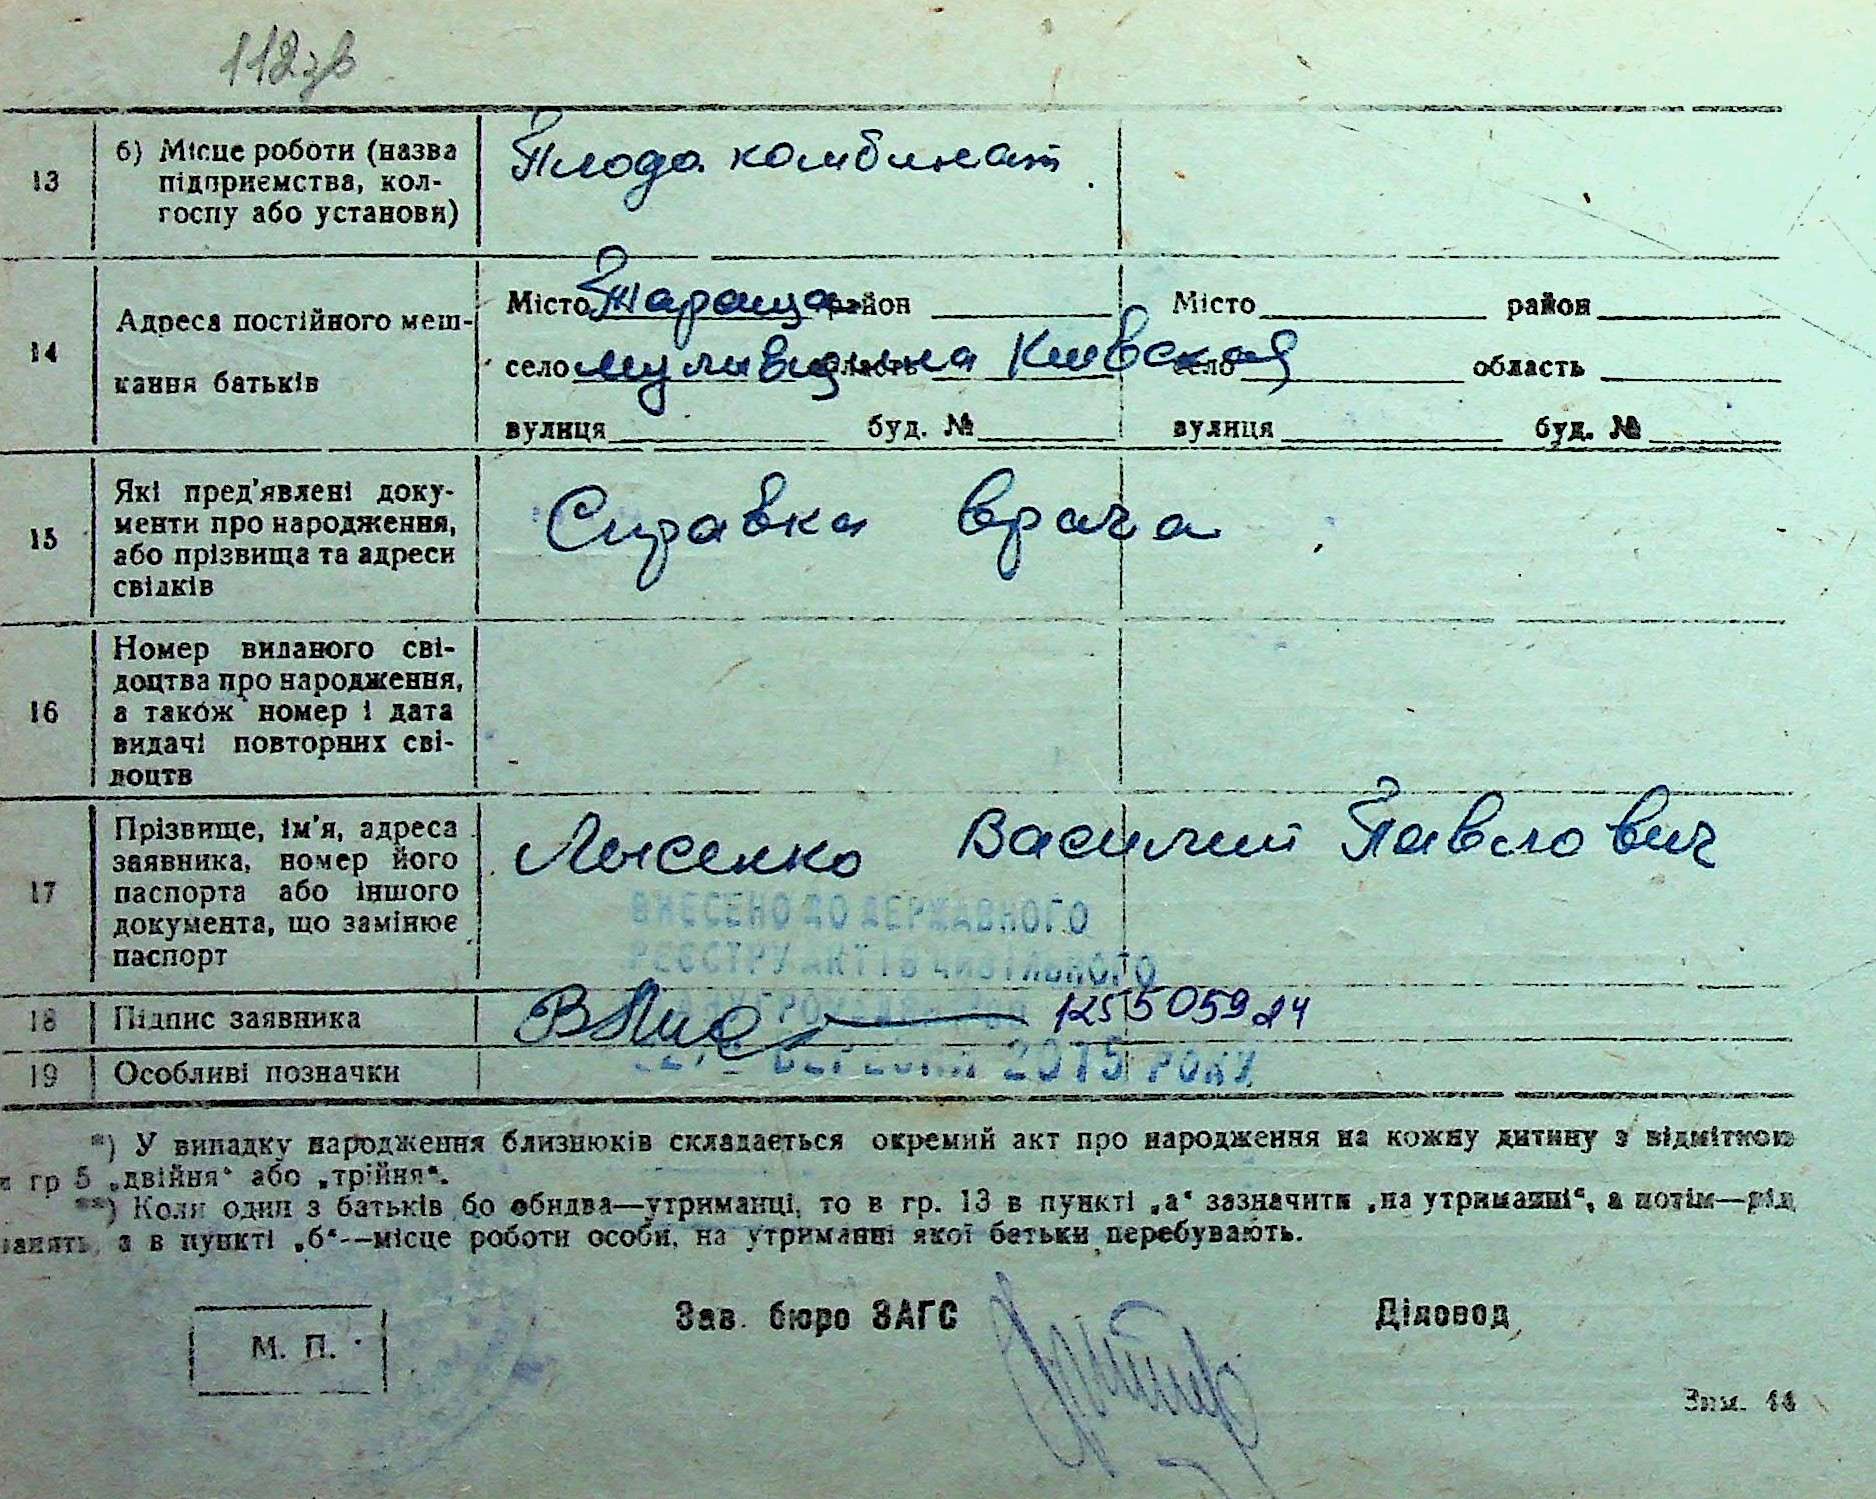 112зв
13
б) Місце роботи (назва
підприємства, кол-
госпу або установи)
Плода комбинат
14
Адреса постійного меш-
кання батьків
Місто Тараща район Місто район
село область Киевская село область
вулиця буд. № вулиця буд. №
15
Які пред'явлені доку-
менти про народження,
або прізвища та адреси
свідків
Справка врача
16
Номер виданого сві-
доцтва про народження,
а також номер і дата
видачі повторних сві-
доцтв
17
Прізвище, ім'я, адреса
заявника, номер його
паспорта або іншого
документа, що замінює
паспорт
Лысенко Василий Павлович
ВНЕСЕНО ДО ДЕРЖАВНОГО
РЕЄСТРУ АКТІВ ЦИВІЛЬНОГО
18
Підпис заявника
19
Особливі позначки
ВЕРЕСНЯ 2015 РОКУ
*) У випадку народження близнюків складається окремий акт про народження на кожну дитину з відміткою
гр 5 „двійня“ або „трійня“.
**) Коли один з батьків бо обидва—утриманці, то в гр. 13 в пункті „а“ зазначити „на утриманні“, а потім—рід
занять, а в пункті „б“—місце роботи особи, на утриманні якої батьки перебувають.
М. П.
Зав. бюро ЗАГС
Діловод